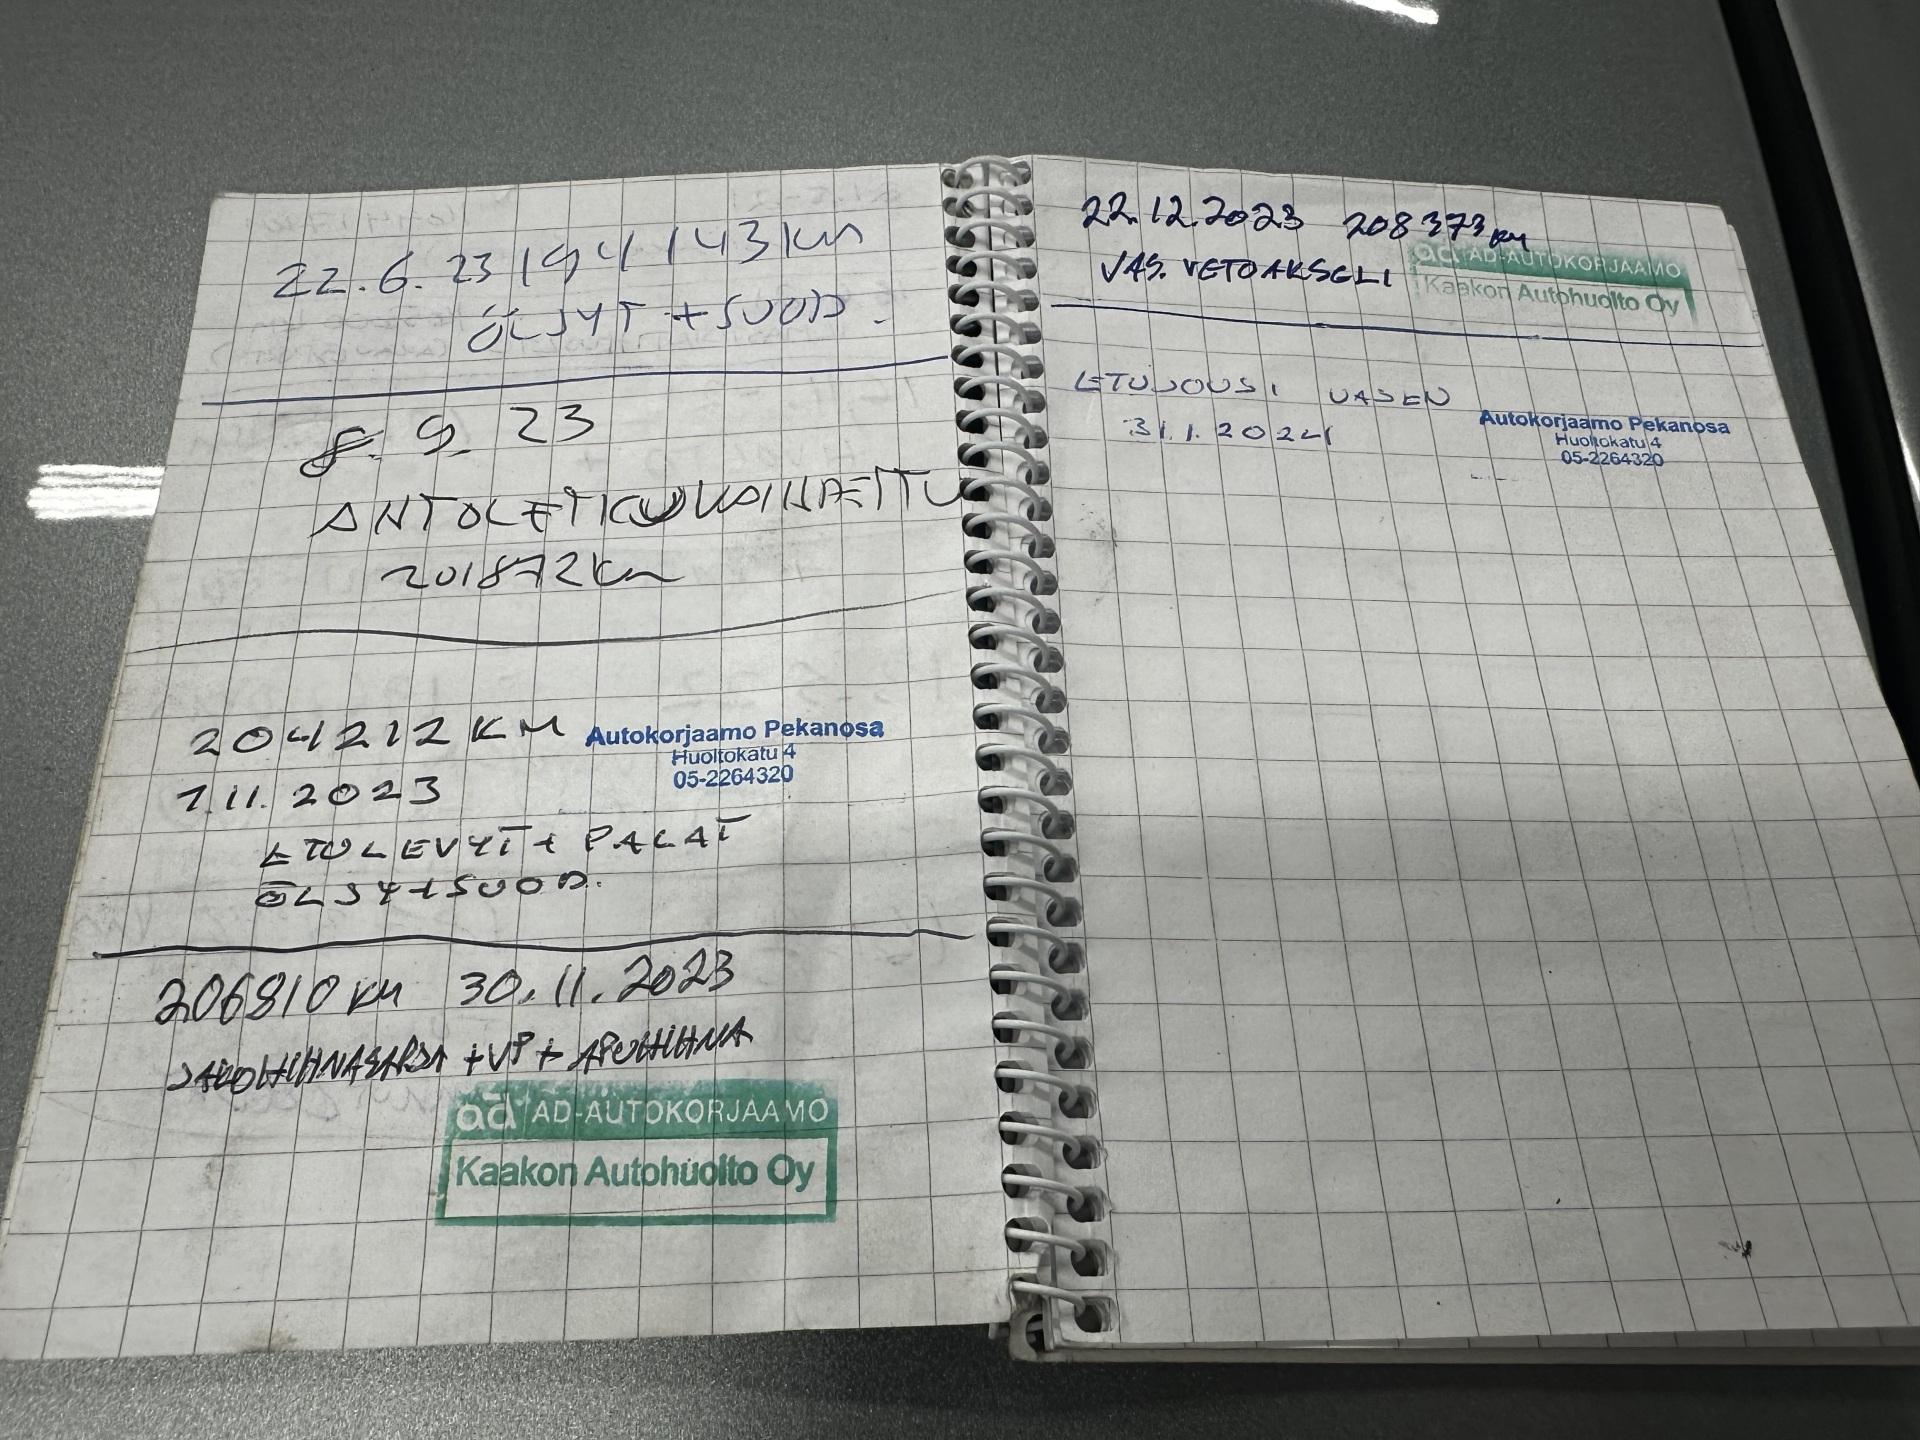 22.6.23 194143 km
ÖLJYT + SUOD.
8. 9. 23
201872 km
204212 KM
Autokorjaamo Pekanosa
Huoltokatu 4
05-2264320
1.11.2023
ETULEVYT + PALAT
ÖLJY + SUOD.
206810 KM 30.11.2023
JAKOHIHNASARJA + VP + APUHIHNA
ad AD-AUTOKORJAAMO
Kaakon Autohuolto Oy
22.12.2023 208373 km
VAS. VETOAKSELI
ad AD-AUTOKORJAAMO
Kaakon Autohuolto Oy
ETUJOUSI VASEN
31.1.2024
Autokorjaamo Pekanosa
Huoltokatu 4
05-2264320